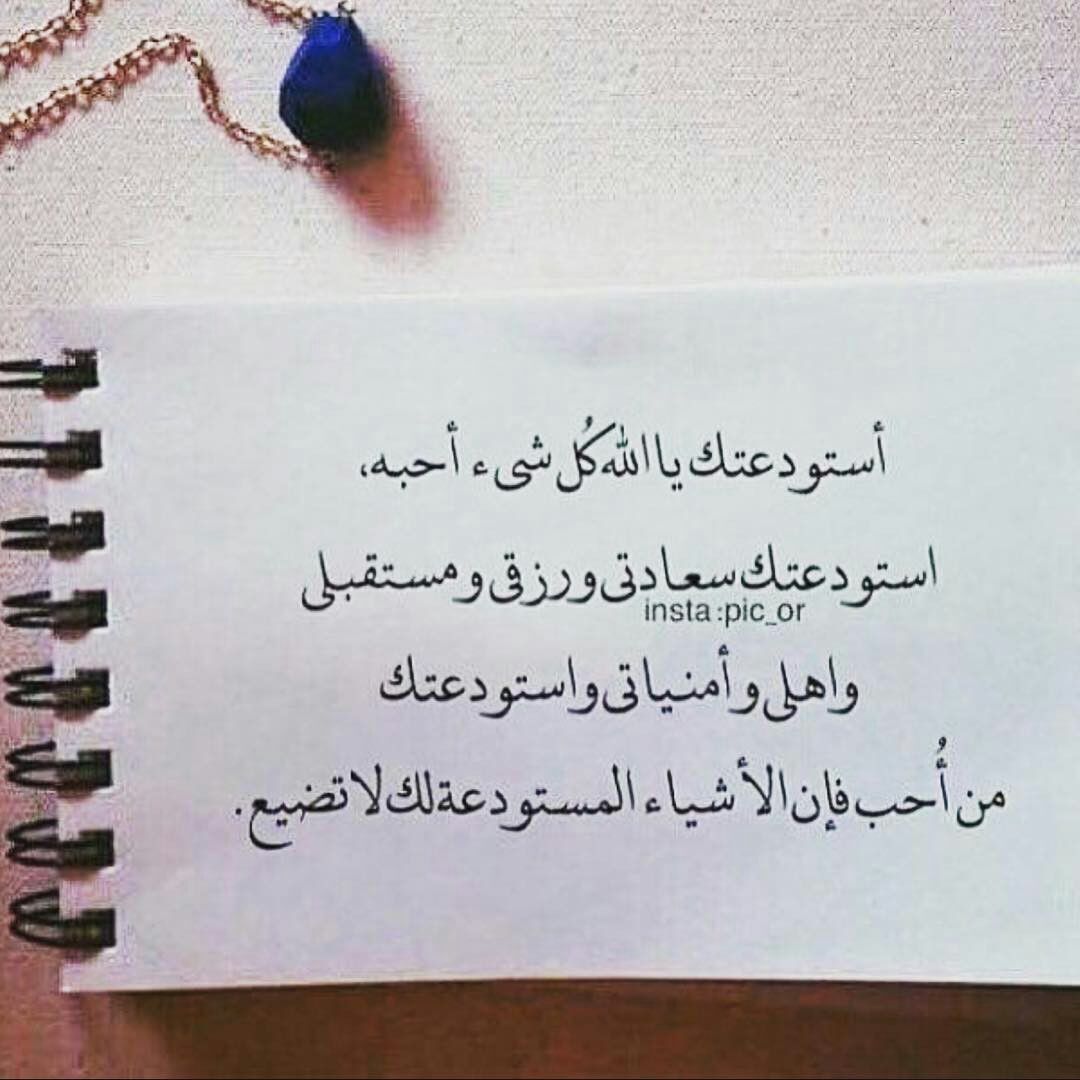 أستودعتك يا الله كُل شىء أحبه،
استودعتك سعادتى ورزقى ومستقبلى
insta:pic_or
واهلى وأمنياتى واستودعتك
من أُحب فإن الأشياء المستودعة لك لا تضيع.